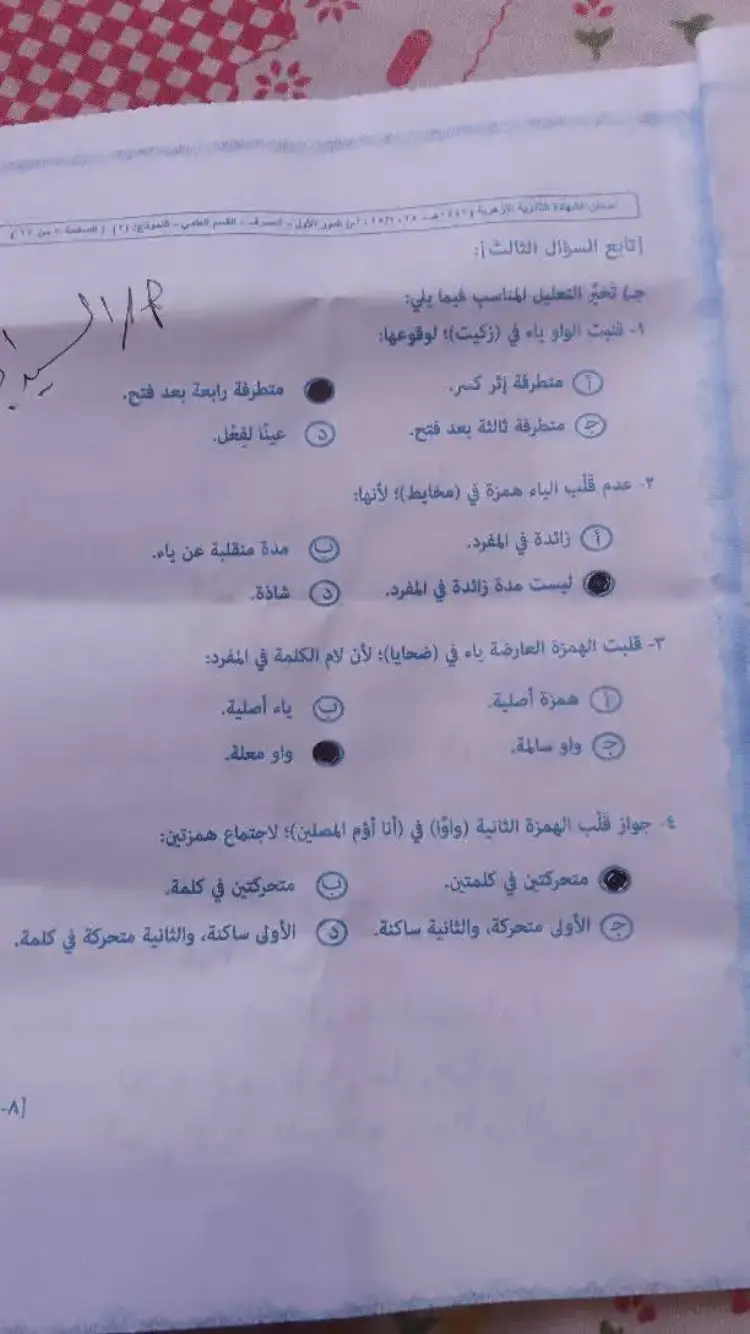 امتحان الشهادة الثانوية الأزهرية الدور الأول - الصرف - القسم العلمي - النموذج: (٢)
[تابع السؤال الثالث]:
جـ) تخيَّر التعليل المناسب فيما يلي:
١- قلبت الواو ياء في (زكيت)؛ لوقوعها:
أ متطرفة إثر كسر. متطرفة رابعة بعد فتح.
ج متطرفة ثالثة بعد فتح. د عينًا لفِعْل.
٢- عدم قَلْب الياء همزة في (مخايط)؛ لأنها:
أ زائدة في المفرد. ب مدة منقلبة عن ياء.
ليست مدة زائدة في المفرد. د شاذة.
٣- قلبت الهمزة العارضة ياء في (ضحايا)؛ لأن لام الكلمة في المفرد:
أ همزة أصلية. ب ياء أصلية.
ج واو سالمة. واو معلة.
٤- جواز قَلْب الهمزة الثانية (واوًا) في (أنا أؤم المصلين)؛ لاجتماع همزتين:
متحركتين في كلمتين. ب متحركتين في كلمة.
ج الأولى متحركة، والثانية ساكنة. د الأولى ساكنة، والثانية متحركة في كلمة.
[٨-